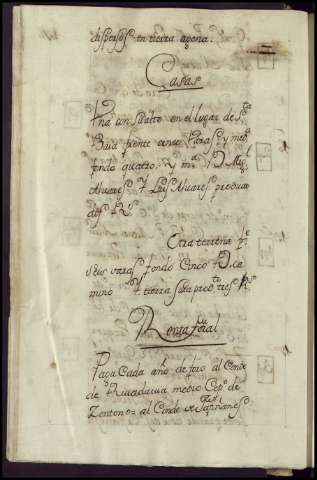 dispersos en tierra agena.
Casas
Una con su Patio en el lugar de Sta
Baia frente cinco Varas y med
fondo quatro. D. Mig.l
Alvares P. Luis Alvares produce
dos Rs
Otra terrena fte
seis varas fondo Cinco D. ca
mino P. tierra suia prod.ce tres Rs
Renta foral
Paga Cada año de foro al Conde
de Rivadavia medio Cep.o de
Zenteno= al Conde de